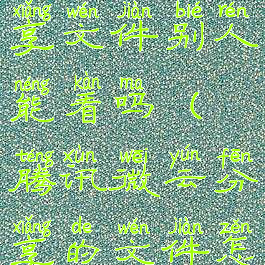 xiǎng wén jiàn bié rén
享文件别人
néng kàn ma
能看吗（
téng xùn wēi yún fēn
腾讯微云分
xiǎng de wén jiàn zěn
享的文件怎